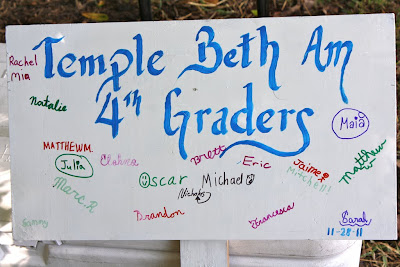 Temple Beth Am
4th Graders
Rachel
Mia
Natalie
Maia
MATTHEW M.
Elishna
Brett
Eric
Jaime
Matthew
Julia
Mitchell
Marc R
Oscar
Michael
Nicholas
Brandon
Francesca
Sammy
Sarah
11-28-11